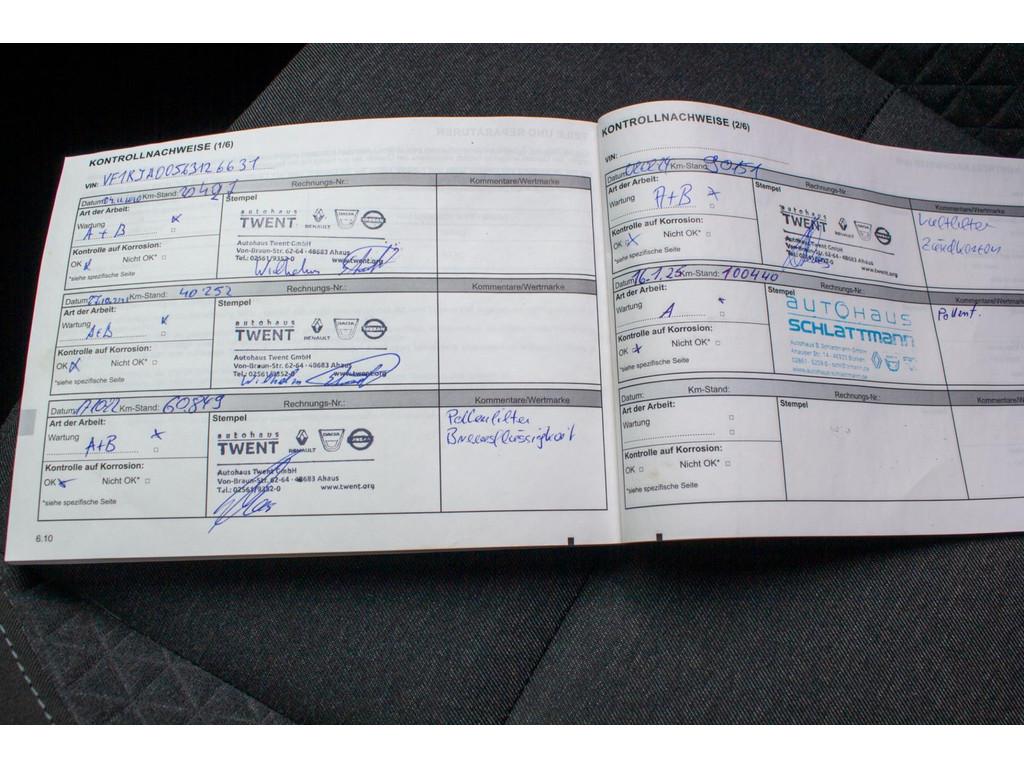 KONTROLLNACHWEISE (1/6)
VIN:
Datum: Km-Stand: 20491 Rechnungs-Nr.: Kommentare/Wertmarke
Art der Arbeit:
Wartung
A + B
Stempel
autohaus
TWENT RENAULT DACIA NISSAN
Autohaus Twent GmbH
Von-Braun-Str. 62-64 · 48683 Ahaus
Tel.: 02561/9352-0 www.twent.org
Kontrolle auf Korrosion:
OK Nicht OK*
*siehe spezifische Seite
Datum: Km-Stand: 40 252 Rechnungs-Nr.: Kommentare/Wertmarke
Art der Arbeit:
Wartung
A+B
Stempel
autohaus
TWENT RENAULT DACIA NISSAN
Autohaus Twent GmbH
Von-Braun-Str. 62-64 · 48683 Ahaus
Tel.: 02561/9352-0 www.twent.org
Kontrolle auf Korrosion:
OK Nicht OK*
*siehe spezifische Seite
Datum: Km-Stand: 60849 Rechnungs-Nr.: Kommentare/Wertmarke
Art der Arbeit:
Wartung
A+B
Stempel
autohaus
TWENT RENAULT DACIA NISSAN
Autohaus Twent GmbH
Von-Braun-Str. 62-64 · 48683 Ahaus
Tel.: 02561/9352-0 www.twent.org
Pollenfilter
Bremsflüssigkeit
Kontrolle auf Korrosion:
OK Nicht OK*
*siehe spezifische Seite
6.10
KONTROLLNACHWEISE (2/6)
VIN:
Datum: Km-Stand: 90151 Rechnungs-Nr.: Kommentare/Wertmarke
Art der Arbeit:
Wartung
A+B
Stempel
autohaus
TWENT RENAULT
Autohaus Twent GmbH
Von-Braun-Str. 62-64 · 48683 Ahaus
www.twent.org
Zündkerzen
Kontrolle auf Korrosion:
OK Nicht OK*
*siehe spezifische Seite
Datum: 16.1.25 Km-Stand: 100440 Rechnungs-Nr.:
Art der Arbeit:
Wartung
A
Stempel
autohaus
SCHLATTMANN
Pollenf.
Kontrolle auf Korrosion:
OK Nicht OK*
*siehe spezifische Seite
Datum: Km-Stand: Rechnungs-Nr.:
Art der Arbeit:
Wartung
Stempel
Kontrolle auf Korrosion:
OK Nicht OK*
*siehe spezifische Seite